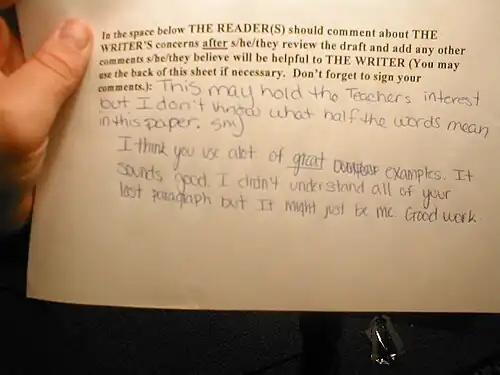 In the space below THE READER(S) should comment about THE
WRITER'S concerns after s/he/they review the draft and add any other
comments s/he/they believe will be helpful to THE WRITER (You may
use the back of this sheet if necessary. Don't forget to sign your
comments.): This may hold the Teachers interest
but I don't know what half the words mean
in this paper.
I think you use alot of great examples. It
sounds good. I didn't understand all of your
last paragraph but It might just be me. Good work.